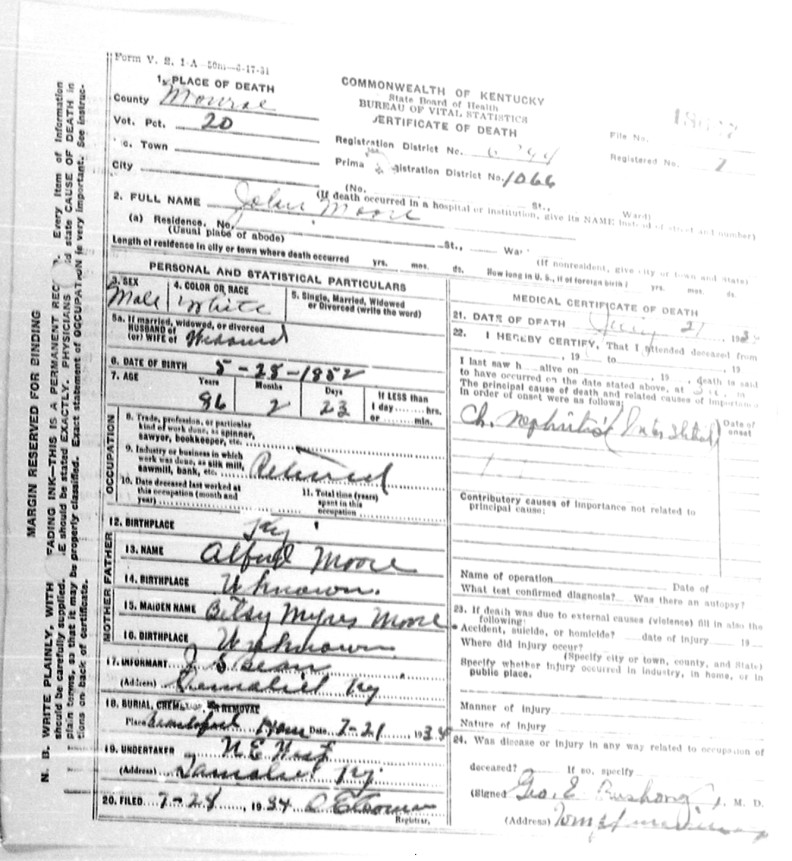 MARGIN RESERVED FOR BINDING
N. B. WRITE PLAINLY, WITH FADING INK—THIS IS A PERMANENT REC. Every item of information
should be carefully supplied. E should be stated EXACTLY. PHYSICIANS state CAUSE OF DEATH in
plain terms, so that it may be properly classified. Exact statement of OCCUPATION is very important. See instruc-
tions on back of certificate.
Form V. S. 1-A
1. PLACE OF DEATH
County Monroe
Vot. Pct. 20
c. Town
City
COMMONWEALTH OF KENTUCKY
State Board of Health
BUREAU OF VITAL STATISTICS
CERTIFICATE OF DEATH
Registration District No.
Registration District No. 1066
File No.
Registered No. 7
(No. St., Ward)
(If death occurred in a hospital or institution, give its NAME instead of street and number)
2. FULL NAME John Moore
(a) Residence. No. St., War
(Usual place of abode)
(If nonresident, give city or town and State)
Length of residence in city or town where death occurred yrs. mos. ds. How long in U. S., if of foreign birth? yrs. mos. ds.
PERSONAL AND STATISTICAL PARTICULARS
3. SEX
Male
4. COLOR OR RACE
White
5. Single, Married, Widowed
or Divorced (write the word)
5a. If married, widowed, or divorced
HUSBAND of
(or) WIFE of
6. DATE OF BIRTH 5-28-1852
7. AGE
Years Months Days
86 2 23
If LESS than
1 day hrs.
or min.
OCCUPATION
8. Trade, profession, or particular
kind of work done, as spinner,
sawyer, bookkeeper, etc.
9. Industry or business in which
work was done, as silk mill,
sawmill, bank, etc. Retired
10. Date deceased last worked at
this occupation (month and
year)
11. Total time (years)
spent in this
occupation
12. BIRTHPLACE Ky
FATHER
13. NAME Alfred Moore
14. BIRTHPLACE Unknown.
MOTHER
15. MAIDEN NAME Betsy Myres Moore
16. BIRTHPLACE Unknown
17. INFORMANT Bean
(Address) Ky
18. BURIAL, CREMATION, OR REMOVAL
Place Date 7-21 1934
19. UNDERTAKER
(Address) Ky.
20. FILED 7-28, 1934
Registrar.
MEDICAL CERTIFICATE OF DEATH
21. DATE OF DEATH July 21 193
22. I HEREBY CERTIFY, That I attended deceased from
, 19 to , 19
I last saw h alive on , 19 , death is said
to have occurred on the date stated above, at m.
The principal cause of death and related causes of importance
in order of onset were as follows:
Date of
onset
Ch. Nephritis
Contributory causes of importance not related to
principal cause:
Name of operation Date of
What test confirmed diagnosis? Was there an autopsy?
23. If death was due to external causes (violence) fill in also the
following:
Accident, suicide, or homicide? date of injury 19
Where did injury occur?
(Specify city or town, county, and State)
Specify whether injury occurred in industry, in home, or in
public place.
Manner of injury
Nature of injury
24. Was disease or injury in any way related to occupation of
deceased? If so, specify
(Signed Geo. E. Bushong, M. D.
(Address)